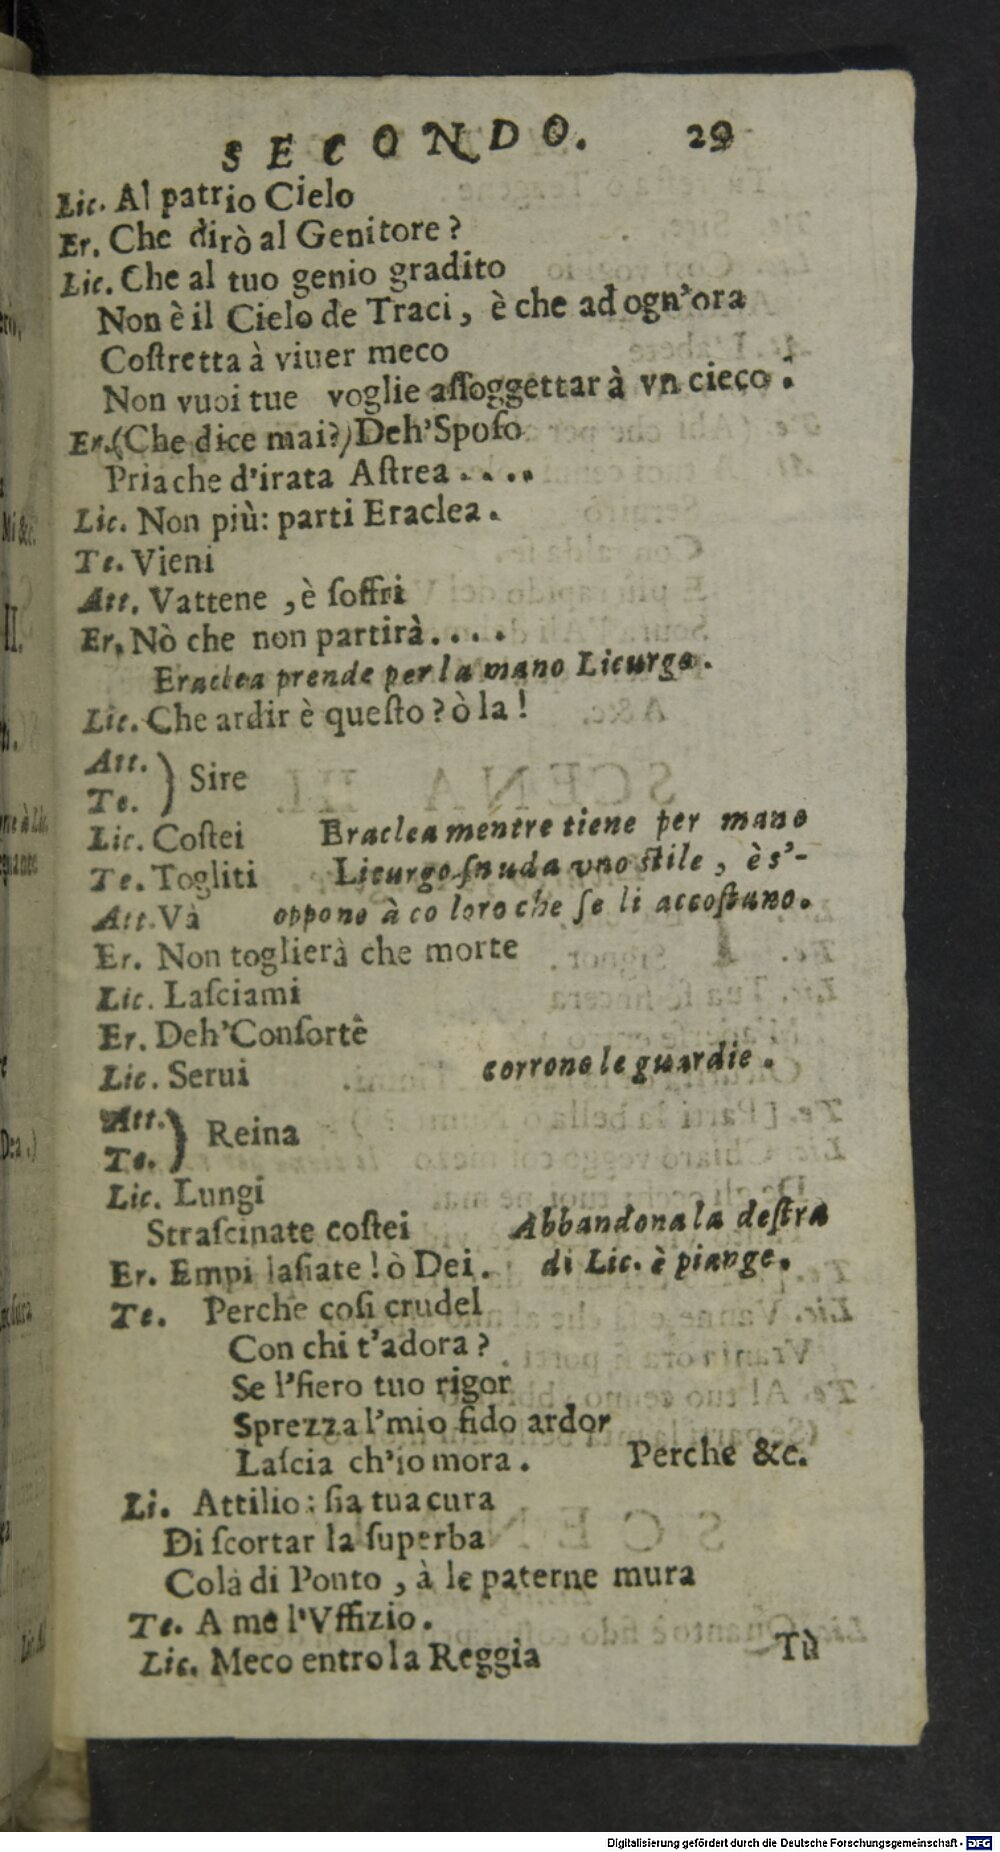 SECONDO. 29
Lic. Al patrio Cielo
Er. Che dirò al Genitore?
Lic. Che al tuo genio gradito
Non è il Cielo de Traci, è che ad ogn'ora
Coſtretta à viuer meco
Non vuoi tue voglie aſſoggettar à vn cieco.
Er. (Che dice mai?) Deh' Spoſo
Pria che d'irata Aſtrea....
Lic. Non più: parti Eraclea.
Te. Vieni
Att. Vattene, è ſoffri
Er. Nò che non partirà....
Eraclea prende per la mano Licurgo.
Lic. Che ardir è queſto? ò la!
Att.
Te. } Sire
Lic. Coſtei Eraclea mentre tiene per mano
Te. Togliti Licurgo ſnuda vno ſtile, è s'-
Att. Và oppone à co loro che ſe li accoſtano.
Er. Non toglierà che morte
Lic. Laſciami
Er. Deh' Conſorte
Lic. Serui corrono le guardie.
Att.
Te. } Reina
Lic. Lungi
Straſcinate coſtei Abbandona la deſtra
Er. Empi laſiate! ò Dei. di Lic. è piange.
Te. Perche coſi crudel
Con chi t'adora?
Se l'fiero tuo rigor
Sprezza l'mio fido ardor
Laſcia ch'io mora. Perche &c.
Li. Attilio: ſia tua cura
Di ſcortar la ſuperba
Colà di Ponto, à le paterne mura
Te. A me l'Vffizio.
Lic. Meco entro la Reggia
Tù
Digitalisierung gefördert durch die Deutsche Forschungsgemeinschaft - DFG